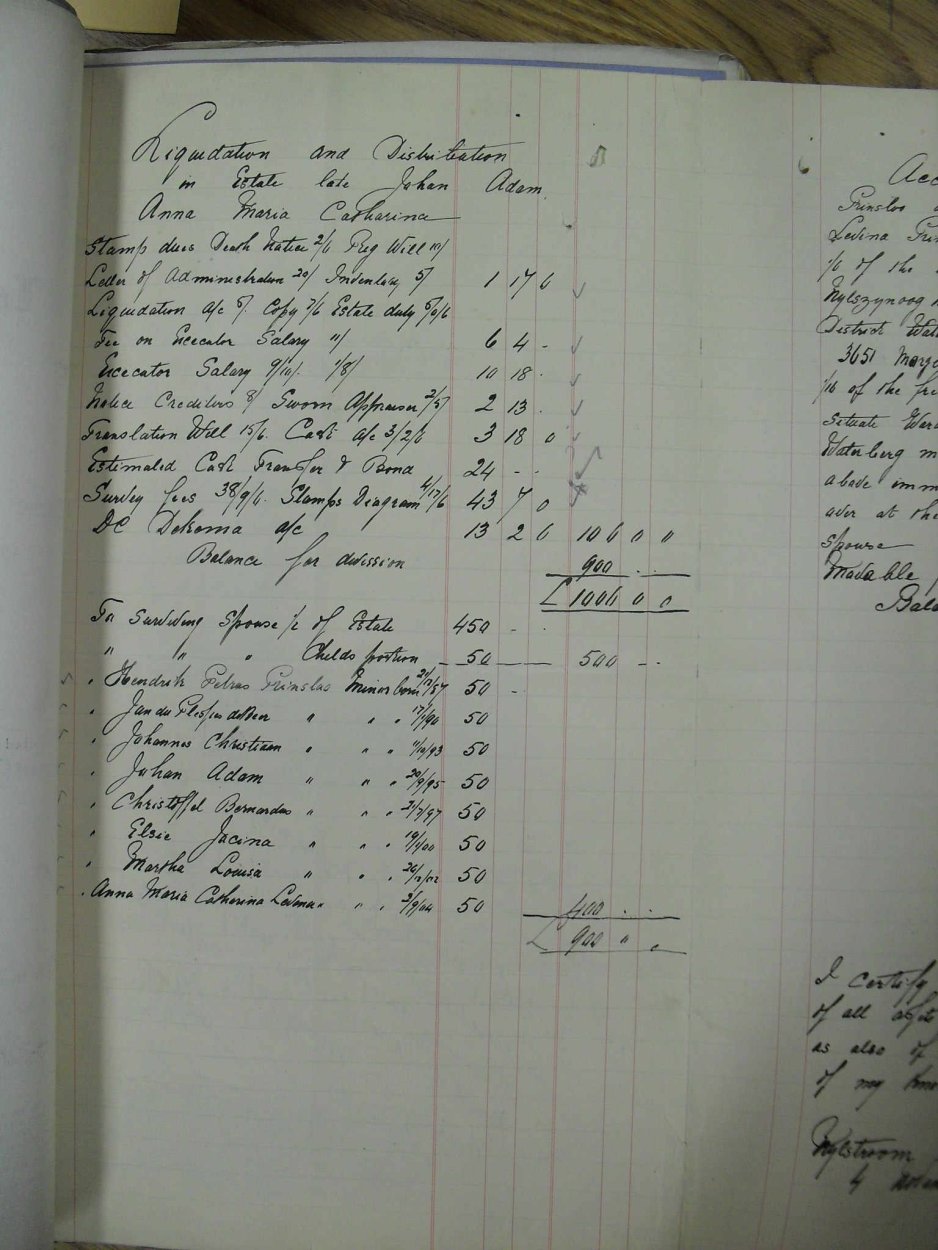 Liquidation and Distribution
in Estate late Johan Adam
Anna Maria Catharina
Stamp dues Death Notice 2/6 Reg Will 10/
Letter of Administration 20/ Indentity 5/ 1 17 6
Liquidation a/c 5/. Copy 7/6 Estate duty
Fee on Excecator Salary 6 4 -
Excecator Salary 10 18 .
Notice Creditors 8/ Sworn Appraiser 2/5/ 2 13 .
Translation Will 15/6. Cash a/c 3/2/6 3 18 0
Estimated Cost Transfer & Bond 24 - -
Survey fees 38/9/6. Stamps Diagram 4/17/6 43 7 0
DC Dekema a/c 13 2 6 106 0 0
Balance for division 900 . .
£ 1006 0 0
To Surviving Spouse 1/2 of Estate 450 - .
" " " Childs portion 50 500 - -
" Hendrik Petrus Prinsloo Minor born 50 -
" Jan du Plessis " " " 50
" Johannes Christiaan " " " 11/10/93 50
" Johan Adam " " " 20/9/95 50
" Christoffel Bernardus " " " 21/7/97 50
" Elsie Jacina " " " 50
" Martha Louisa " " " 50
" Anna Maria Catharina Levina " " " 3/9/04 50 400 . .
£ 900 " "
Acc
Prinsloo
Levina Pri
1/2 of the
Nylszynoog
District Wat
3651 Morg
of the fre
Situate Ward
Waterberg m
above imm
over at the
Spouse
Movable
Bala
I certify
of all
as also of
of my kno
Nylstroom
4